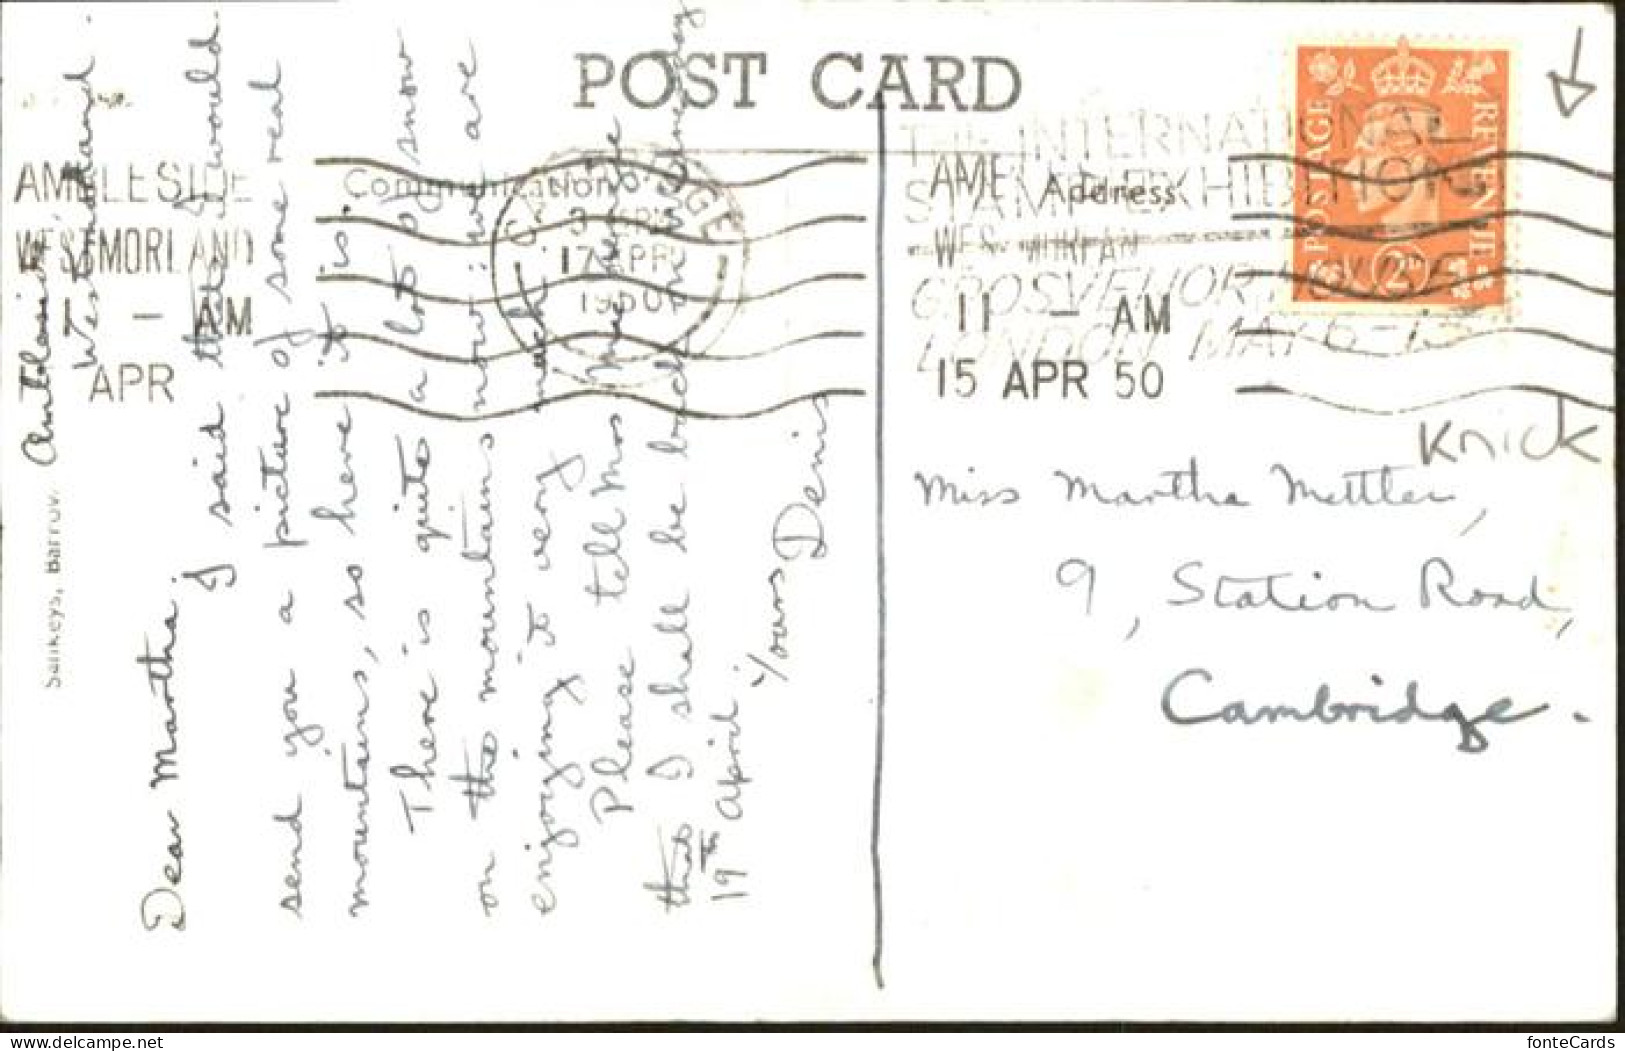 POST CARD
Communication
Address
AMBLESIDE
WESTMORLAND
- AM
APR
CAMBRIDGE
3 15 PM
17 APR
1950
AMB
WESTMORLAND
11 - AM
15 APR 50
THE INTERNATIONAL
STAMP EXHIBITION
GROSVENOR HOUSE
LONDON MAY 6-13
POSTAGE REVENUE
2D
Sankeys, Barrow.
Ambleside,
Westmorland.
Dear Martha.
I said that I would
send you a picture of some real
mountains, so here it is.
There is quite a lot of snow
on the mountains now; we are
enjoying it very much.
Please tell Mrs
that I shall be back on Wednesday
19th April.
Yours
Denis
Knick
Miss Martha Mettler,
9, Station Road,
Cambridge.
fonteCards